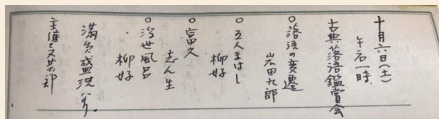 十月六日(土)
午后一時
古典落語鑑賞会
○落語の変遷
岩田九郎
○五人まはし
柳好
○富久
志ん生
○浮世風呂
柳好
満員盛況